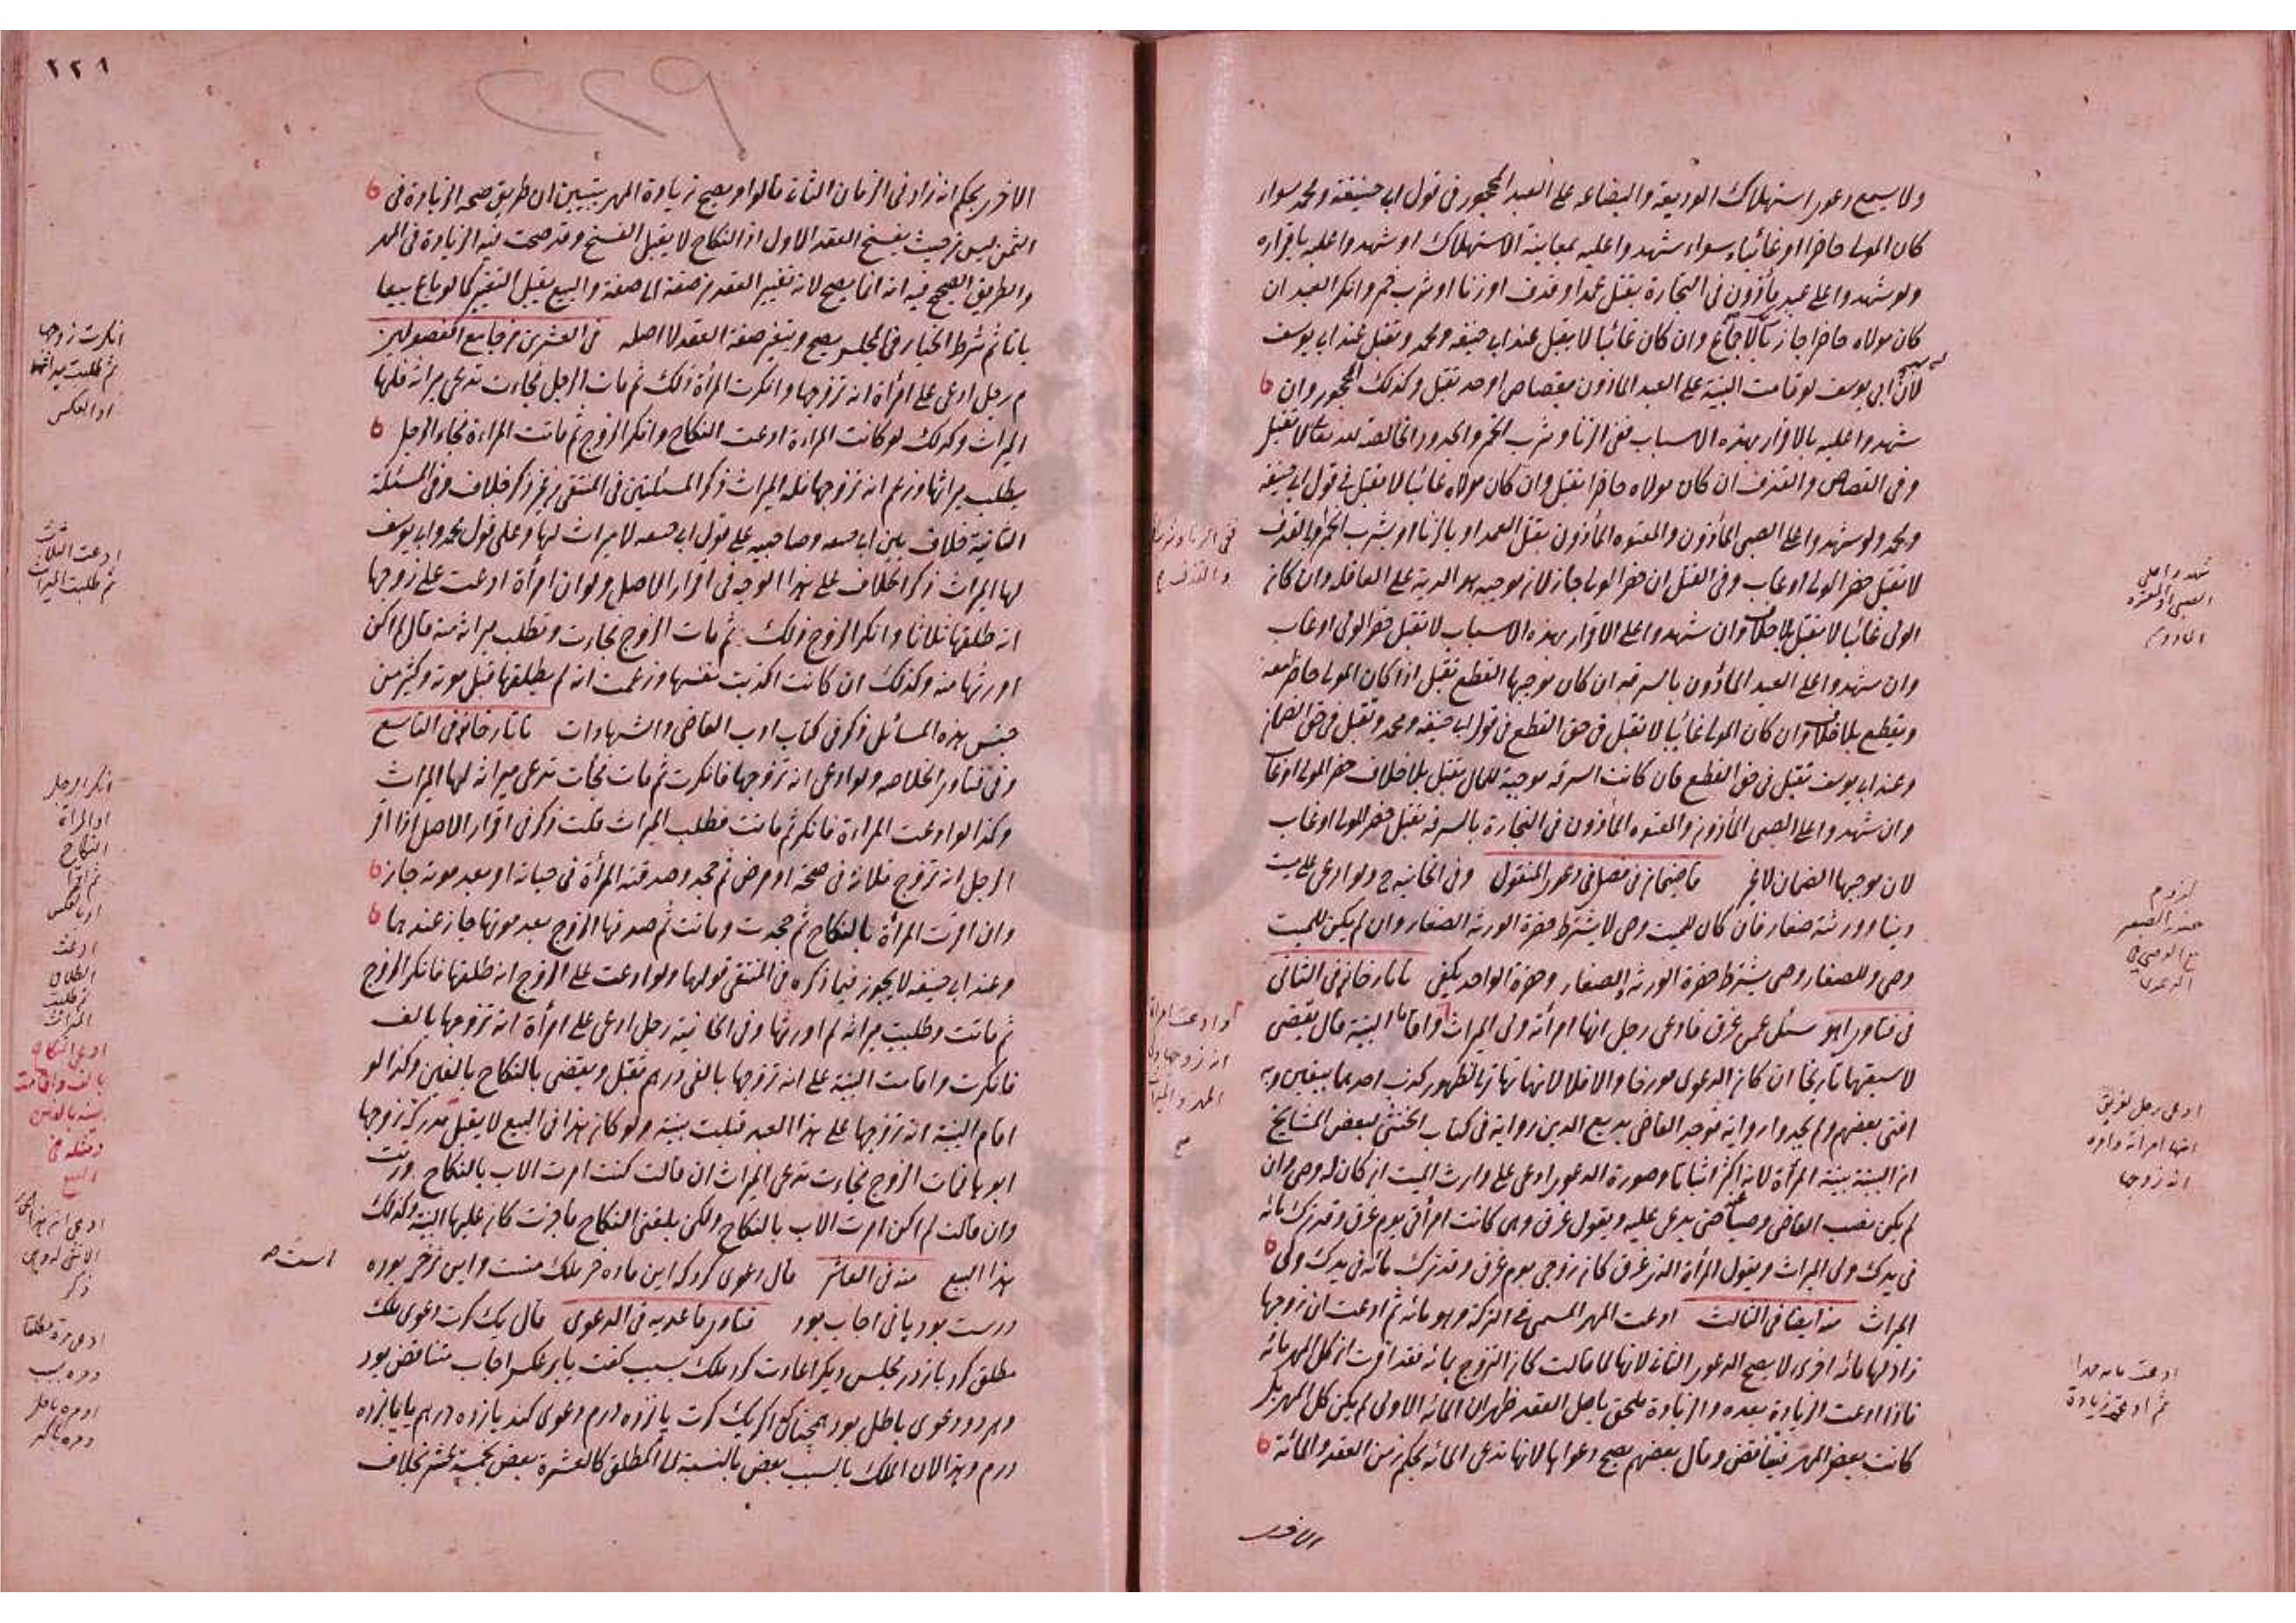 ولا يسمع دعوى استهلاك الوديعة والبضاعة على العبد المحجور في قول ابي حنيفة ومحمد سواء
كان المولى حاضرا او غائبا وسواء شهدوا عليه بمعاينة الاستهلاك او شهدوا عليه باقراره
ولو شهدوا على عبد مأذون في التجارة بقتل عمد او قذف او زنا او شرب خمر وانكر العبد ان
كان مولاه حاضرا جاز بالاجماع وان كان غائبا لا يقبل عند ابي حنيفة ومحمد وتقبل عند ابي يوسف
لان ابي يوسف لو قامت البينة على العبد المأذون بقصاص او حد تقبل وكذلك المحجور وان
شهدوا عليه بالاقرار بهذه الاسباب ففي الزنا وشرب الخمر والحدود الخالصة لله تعالى لا تقبل
وفي القصاص والقذف ان كان مولاه حاضرا تقبل وان كان مولاه غائبا لا تقبل في قول ابي حنيفة
ومحمد ولو شهدوا على الصبي المأذون والمعتوه المأذون بقتل العمد او بالزنا او بشرب الخمر او القذف
لا تقبل حضر المولى او غاب وفي القتل ان حضر المولى جاز لان موجبه هو الدية على العاقلة وان كان
المولى غائبا لا تقبل بلا خلاف وان شهدوا على الاقرار بهذه الاسباب لا تقبل حضر المولى او غاب
وان شهدوا على العبد المأذون بالسرقة ان كان موجبها القطع تقبل اذا كان المولى حاضرا معه
ويقطع بلا خلاف وان كان المولى غائبا لا تقبل في حق القطع في قول ابي حنيفة ومحمد وتقبل في حق الضمان
وعند ابي يوسف تقبل في حق القطع فان كانت السرقة موجبة للمال يقبل بلا خلاف حضر المولى او غاب
وان شهدوا على الصبي المأذون والمعتوه المأذون في التجارة بالسرقة تقبل حضر المولى او غاب
لان موجبها الضمان لا غير قاضيخان في فصل في دعوى المنقول وفي الخانية ج ولو ادعى على ميت
دينا وورثته صغار فان كان للميت وصي لا يشترط حضرة الورثة الصغار وان لم يكن للميت
وصي وللصغار وصي يشترط حضرة الورثة الصغار وحضرة الواحد يكفي تاتارخاني في الثاني
في فتاوى آهو سئل عمن غرق فادعى رجل انها امرأته ولي الميراث واقاما البينة قال يقضي
لاسبقهما تاريخا ان كان الدعوى مورخا والا فلا لانهما تهاترتا لظهور كذب احديهما بيقين وبه
افتى بعضهم ولم يجدوا رواية فوجد القاضي بديع الدين رواية في كتاب الخنثى لبعض المشايخ
ان البينة بينة المرأة لانه اكثر اثباتا وصورة الدعوى ادعى على وارث الميت ان كان له وصي وان
لم يكن نصب القاضي وصيا حتى يدعي عليه ويقول غرق وهي كانت امرأتي يوم غرق وقد ترك مائة
في يدك ولي الميراث ويقول المرأة الذي غرق كان زوجي يوم غرق وقد ترك مائة في يدك ولي
الميراث منه ايضا في الثالث ادعت المهر المسمى في التركة وهو مائة ثم ادعت ان زوجها
زاد لها مائة اخرى لا يصح الدعوى الثانية لانها لما قالت كان التزوج بمائة فقد اقرت ان كل المهر مائة
فاذا ادعت الزيادة بعده والزيادة ملحق باصل العقد ظهر ان المائة الاولى لم يكن كل المهر بل
كانت بعض المهر فيتناقض وقال بعضهم يصح دعواها لانها تدعي المائة بحكم زمن العقد والمائة
الاخرى
شهدوا على
الصبي او المعتوه
المأذون
لزوم
حضرة الصغير
مع الوصي في
الدعوى
ادعى رجل لغريق
انها امرأته وامرأة
انه زوجها
ادعت مائة مهرا
ثم ادعت زيادة
٢٢٨
229
الاخرى بحكم انه زاد في الزمان الثاني قالوا ويصح زيادة المهر يتبين ان طريق صحة الزيادة في
الثمن ليس من حيث يفسخ العقد الاول اذ النكاح لا يقبل الفسخ وقد صحت فيه الزيادة في المهر
والطريق الصحيح فيه انه انما يصح لانه تغيير العقد من صفة الى صفة والبيع يقبل التغير كما لو باع بيعا
باتا ثم شرط الخيار في المجلس يصح ويتغير صفة العقد لا اصله في العشرين من جامع الفصولين
م رجل ادعى على امرأة انه تزوجها وانكرت المرأة ذلك ثم مات الرجل فجاءت تدعي ميراثه فلها
الميراث وكذلك لو كانت المراءة ادعت النكاح وانكر الزوج ثم ماتت المراءة فجاء الرجل
يطلب ميراثها وزعم انه تزوجها فله الميراث ذكر المسئلتين في المنتقى من غير ذكر خلاف وفي المسئلة
الثانية خلاف بين ابي حنيفة وصاحبيه على قول ابي حنيفة لا ميراث لها وعلى قول محمد وابي يوسف
لها الميراث ذكر الخلاف على هذا الوجه في اقرار الاصل ولو ان امرأة ادعت على زوجها
انه طلقها ثلاثا وانكر الزوج ذلك ثم مات الزوج فجاءت وتطلب ميراثه منه قال لم اكن
اورثها منه وكذلك ان كانت اكذبت نفسها وزعمت انه لم يطلقها قبل موته وكثير من
جنس هذه المسائل ذكر في كتاب ادب القاضي والشهادات تاتارخاني في التاسع
وفي فتاوى الخلاصة ولو ادعى انه تزوجها فانكرت ثم مات فجأت تدعي ميراثه لها الميراث
وكذا لو ادعت المراءة فانكر ثم ماتت فطلب الميراث قلت ذكر في اقرار الاصل اذا اقر
الرجل انه تزوج فلانة في صحة او مرض ثم جحد وصدقته المرأة في حياته او بعد موته جاز
وان اقرت المرأة بالنكاح ثم جحدت وماتت ثم صدقها الزوج بعد موتها جاز عندهما
وعند ابي حنيفة لا يجوز فيما ذكره في المنتقى قولها ولو ادعت على الزوج انه طلقها فانكر الزوج
ثم ماتت وطلبت ميراثه لم اورثها وفي الخانية رجل ادعى على امرأة انه تزوجها بالف
فانكرت واقامت البينة على انه تزوجها بالفي درهم تقبل ويقضي بالنكاح بالفين وكذا لو
اقام البينة انه تزوجها على هذا العبد قبلت بينته ولو كان هذا في البيع لا يقبل مدركة زوجها
ابوها فمات الزوج فجاءت تدعي الميراث ان قالت كنت امرت الاب بالنكاح ورثت
وان قالت لم اكن امرت الاب بالنكاح ولكن بلغني النكاح فاجزت كان عليها البينة وكذلك
هذا البيع منه في العاشر قال دعوى كرد كه اين ماده خر ملك منست واين نر خر بوده است
درست بود يا ني اجاب بود فتاوى قاعديه في الدعوى قال يك كرت دعوى ملك
مطلق كرد باز در مجلس ديكر اعادت كرد ملك بسبب كفت يا بر عكس اجاب متناقض بود
وهر دو دعوى باطل بود همچنانكه اكر يك كرت يازده درم دعوى كند يازده درهم يا پانزده
درم وهذا لان الملك بالسبب بعض بالنسبة الى المطلق كالعشرة بعض بخمسة عشر بخلاف
انكرت زوجها
ثم طلبت ميراثها
او العكس
ادعت الثلاث
ثم طلبت الميراث
انكر الرجل
او المرأة
النكاح
ثم اقرا
او بالعكس
ادعت
الطلاق
ثم طلبت
الميراث
ادعى النكاح
بالف واقامت
بينة بالفين
ومثله في
البيع